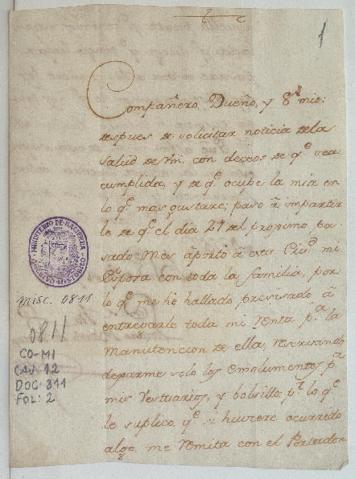 1
Compañero, Dueño, y S.r mio:
despues de solicitar noticia de la
salud de Vm. con deseos de q.e sea
cumplida, y de q.e ocupe la mia en
lo q.e mas gustare, paso à impartir
le de q.e el dia 27 del proximo pa
sado Mes aportó à esta Ciu.d mi
Esposa con toda la familia, por
lo q.e me he hallado precisado à
entregarle toda mi renta p.a la
Manutencion de ella reservando
dejarme solo los emolumentos p.a
mis vestuarios, y bolsillo p.r lo q.e
le suplico q.e si huviere ocurrido
algo, me remita con el Portador
MINISTERIO DE HACIENDA
Misc. 0811
0811
CO-MI
CAJ: 12
DOC: 811
FOL: 2